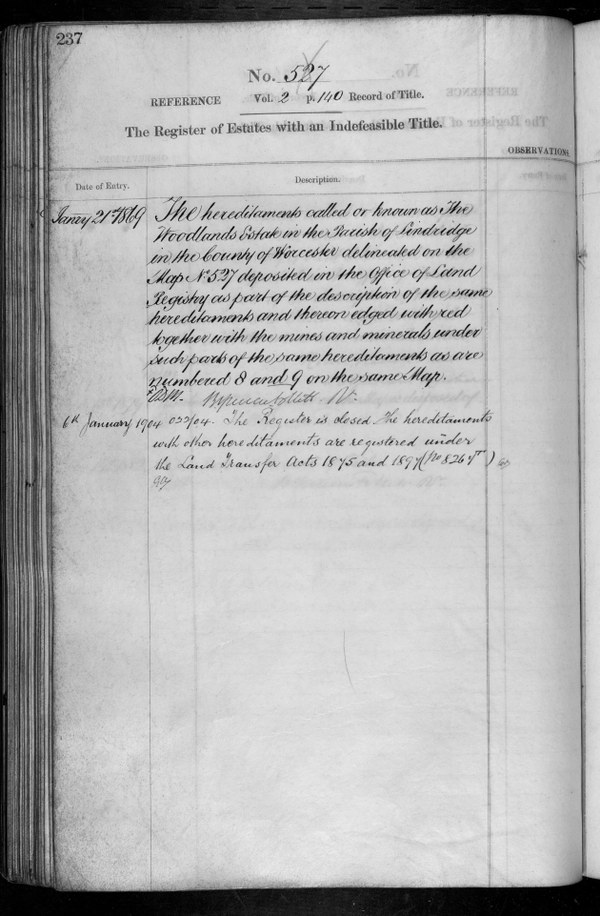 237
No. 527
REFERENCE Vol. 2 p. 140 Record of Title.
The Register of Estates with an Indefeasible Title.
OBSERVATIONS.
Date of Entry.
Description.
Janry 21st 1869 The hereditaments called or known as The
Woodlands Estate in the Parish of Lindridge
in the County of Worcester delineated on the
Map No 527 deposited in the Office of Land
Registry as part of the description of the same
hereditaments and thereon edged with red
together with the mines and minerals under
such parts of the same hereditaments as are
numbered 8 and 9 on the same Map.
6th January 1904 022/04. The Register is closed. The hereditaments
with other hereditaments are registered under
the Land Transfer Acts 1875 and 1897 (No 826 )